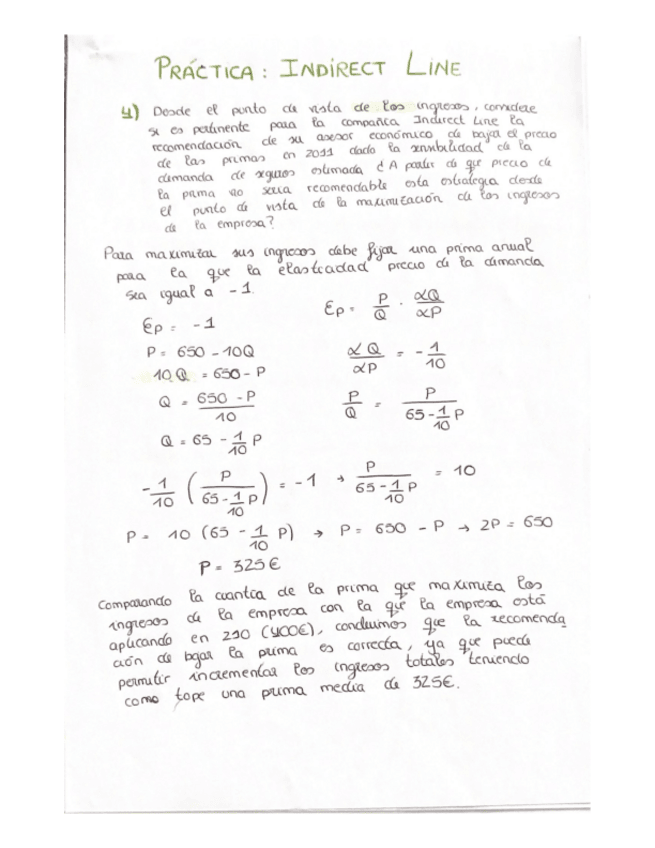 PRÁCTICA: INDIRECT LINE
4) Desde el punto de vista de los ingresos, considere
si es pertinente para la compañía Indirect Line la
recomendación de su asesor económico de bajar el precio
de las primas en 2011 dado la sensibilidad de la
demanda de seguros estimada ¿A partir de que precio de
la prima no seria recomendable esta estrategia desde
el punto de vista de la maximización de los ingresos
de la empresa?
Para maximizar sus ingresos debe fijar una prima anual
para la que la elasticidad precio de la demanda
sea igual a -1.
Ep = P/Q · αQ/αP
Ep = -1
P = 650 - 10Q
αQ/αP = -1/10
10Q = 650 - P
Q = 650 - P / 10
P/Q = P / 65 - 1/10 P
Q = 65 - 1/10 P
-1/10 (P / 65 - 1/10 P) = -1 → P / 65 - 1/10 P = 10
P = 10 (65 - 1/10 P) → P = 650 - P → 2P = 650
P = 325€
Comparando la cuantía de la prima que maximiza los
ingresos de la empresa con la que la empresa está
aplicando en 210 (400€), concluimos que la recomenda
ción de bajar la prima es correcta, ya que puede
permitir incrementar los ingresos totales teniendo
como tope una prima media de 325€.